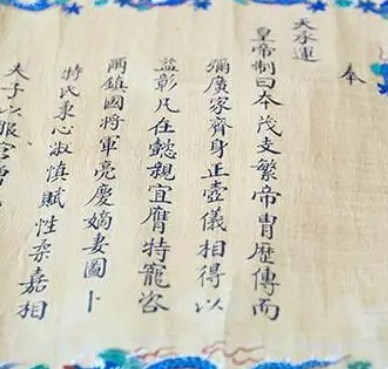 奉
天承運
皇帝制曰本茂支繁帝冑歷傳而
彌廣家齊身正壼儀相得以
益彰凡在懿親宜膺特寵咨
爾鎮國將軍亮慶嫡妻圖卜
特氏秉心淑慎賦性柔嘉相
夫子以服官